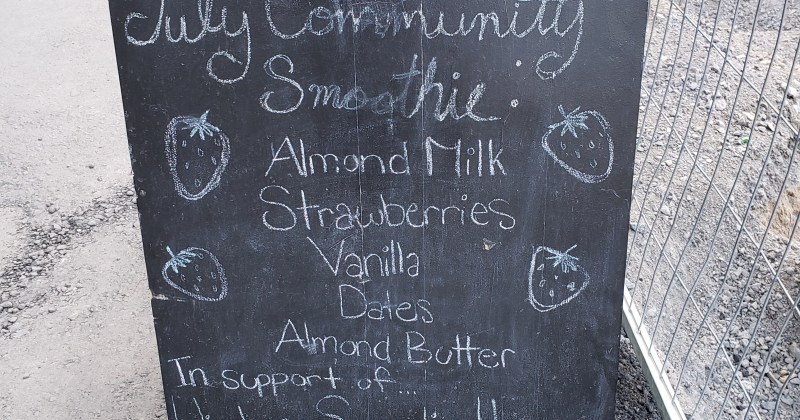 July Community
Smoothie:
Almond Milk
Strawberries
Vanilla
Dates
Almond Butter
In support of...